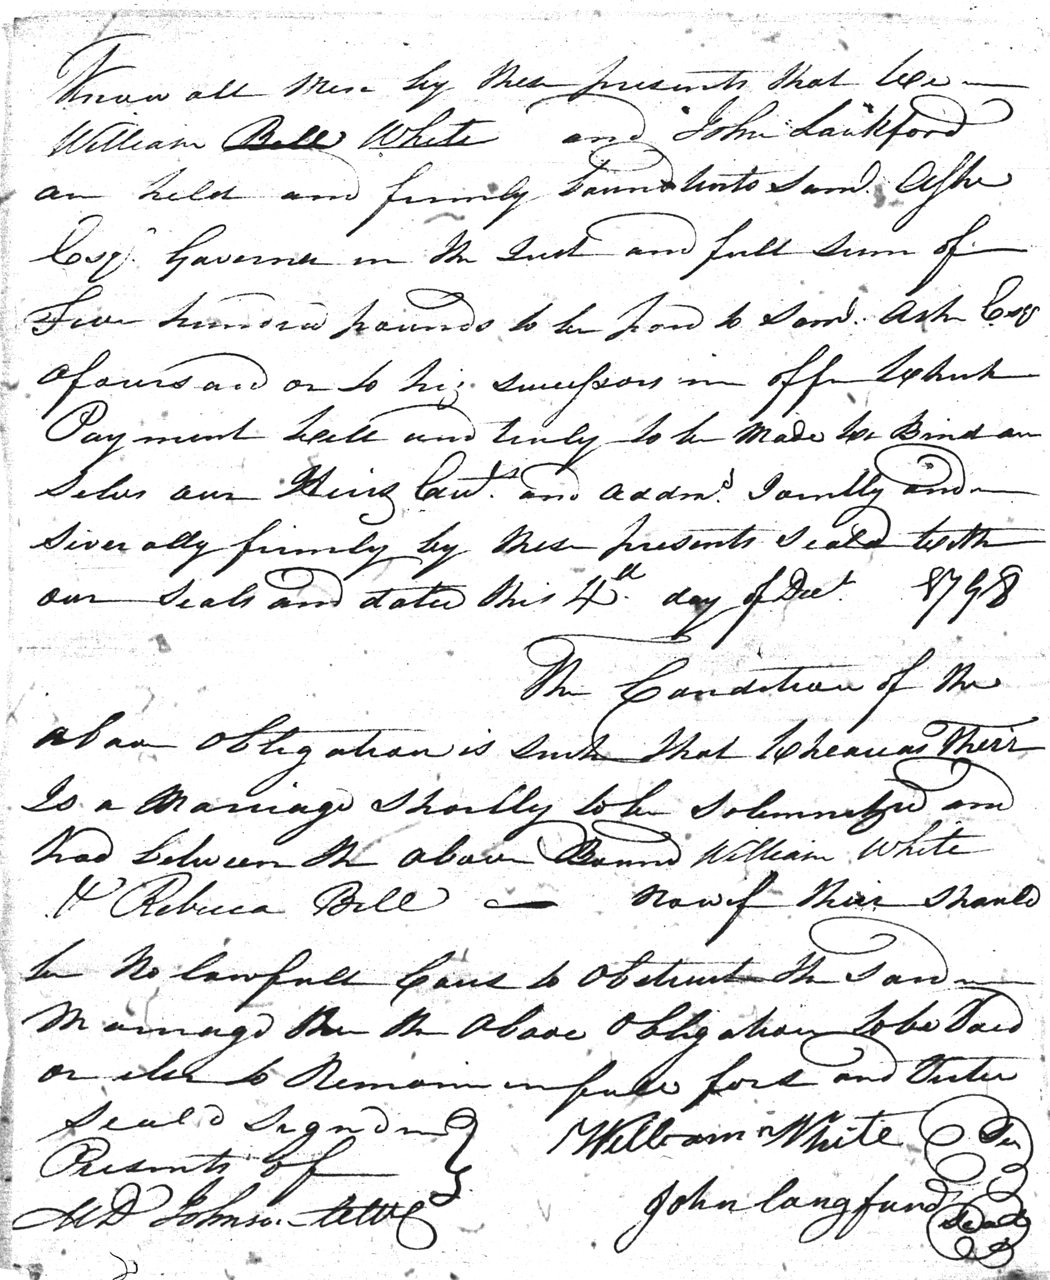 Know all Men by these presents that We
William Bell White and John Lankford
are held and firmly Bound unto Saml. Ashe
Esqr. Governer in the Just and full sum of
Five hundred pounds to be paid to Saml. Ashe Esqr
aforesaid or to his successors in offis Which
Payment Well and truly to be Made We Bind our
Selves our Heirs Exut.s and Addm.s Jointly and
Severally firmly by these presents Seald With
our Seals and dated this 4th day of Dec.r 1798
The Condition of the
above Obligation is such that Wheareas Their
Is a Marriage Shortly to be Solemnized and
had between the above Bound William White
& Rebecca Bell now if their should
be No lawfull Caus to Obstruct the Said
Marriage then the Above Obligation to be Void
or else to Remain in full force and Virtue
Seal'd Signd in
Presents of
William White Seal
John Langford Seal
Johnson